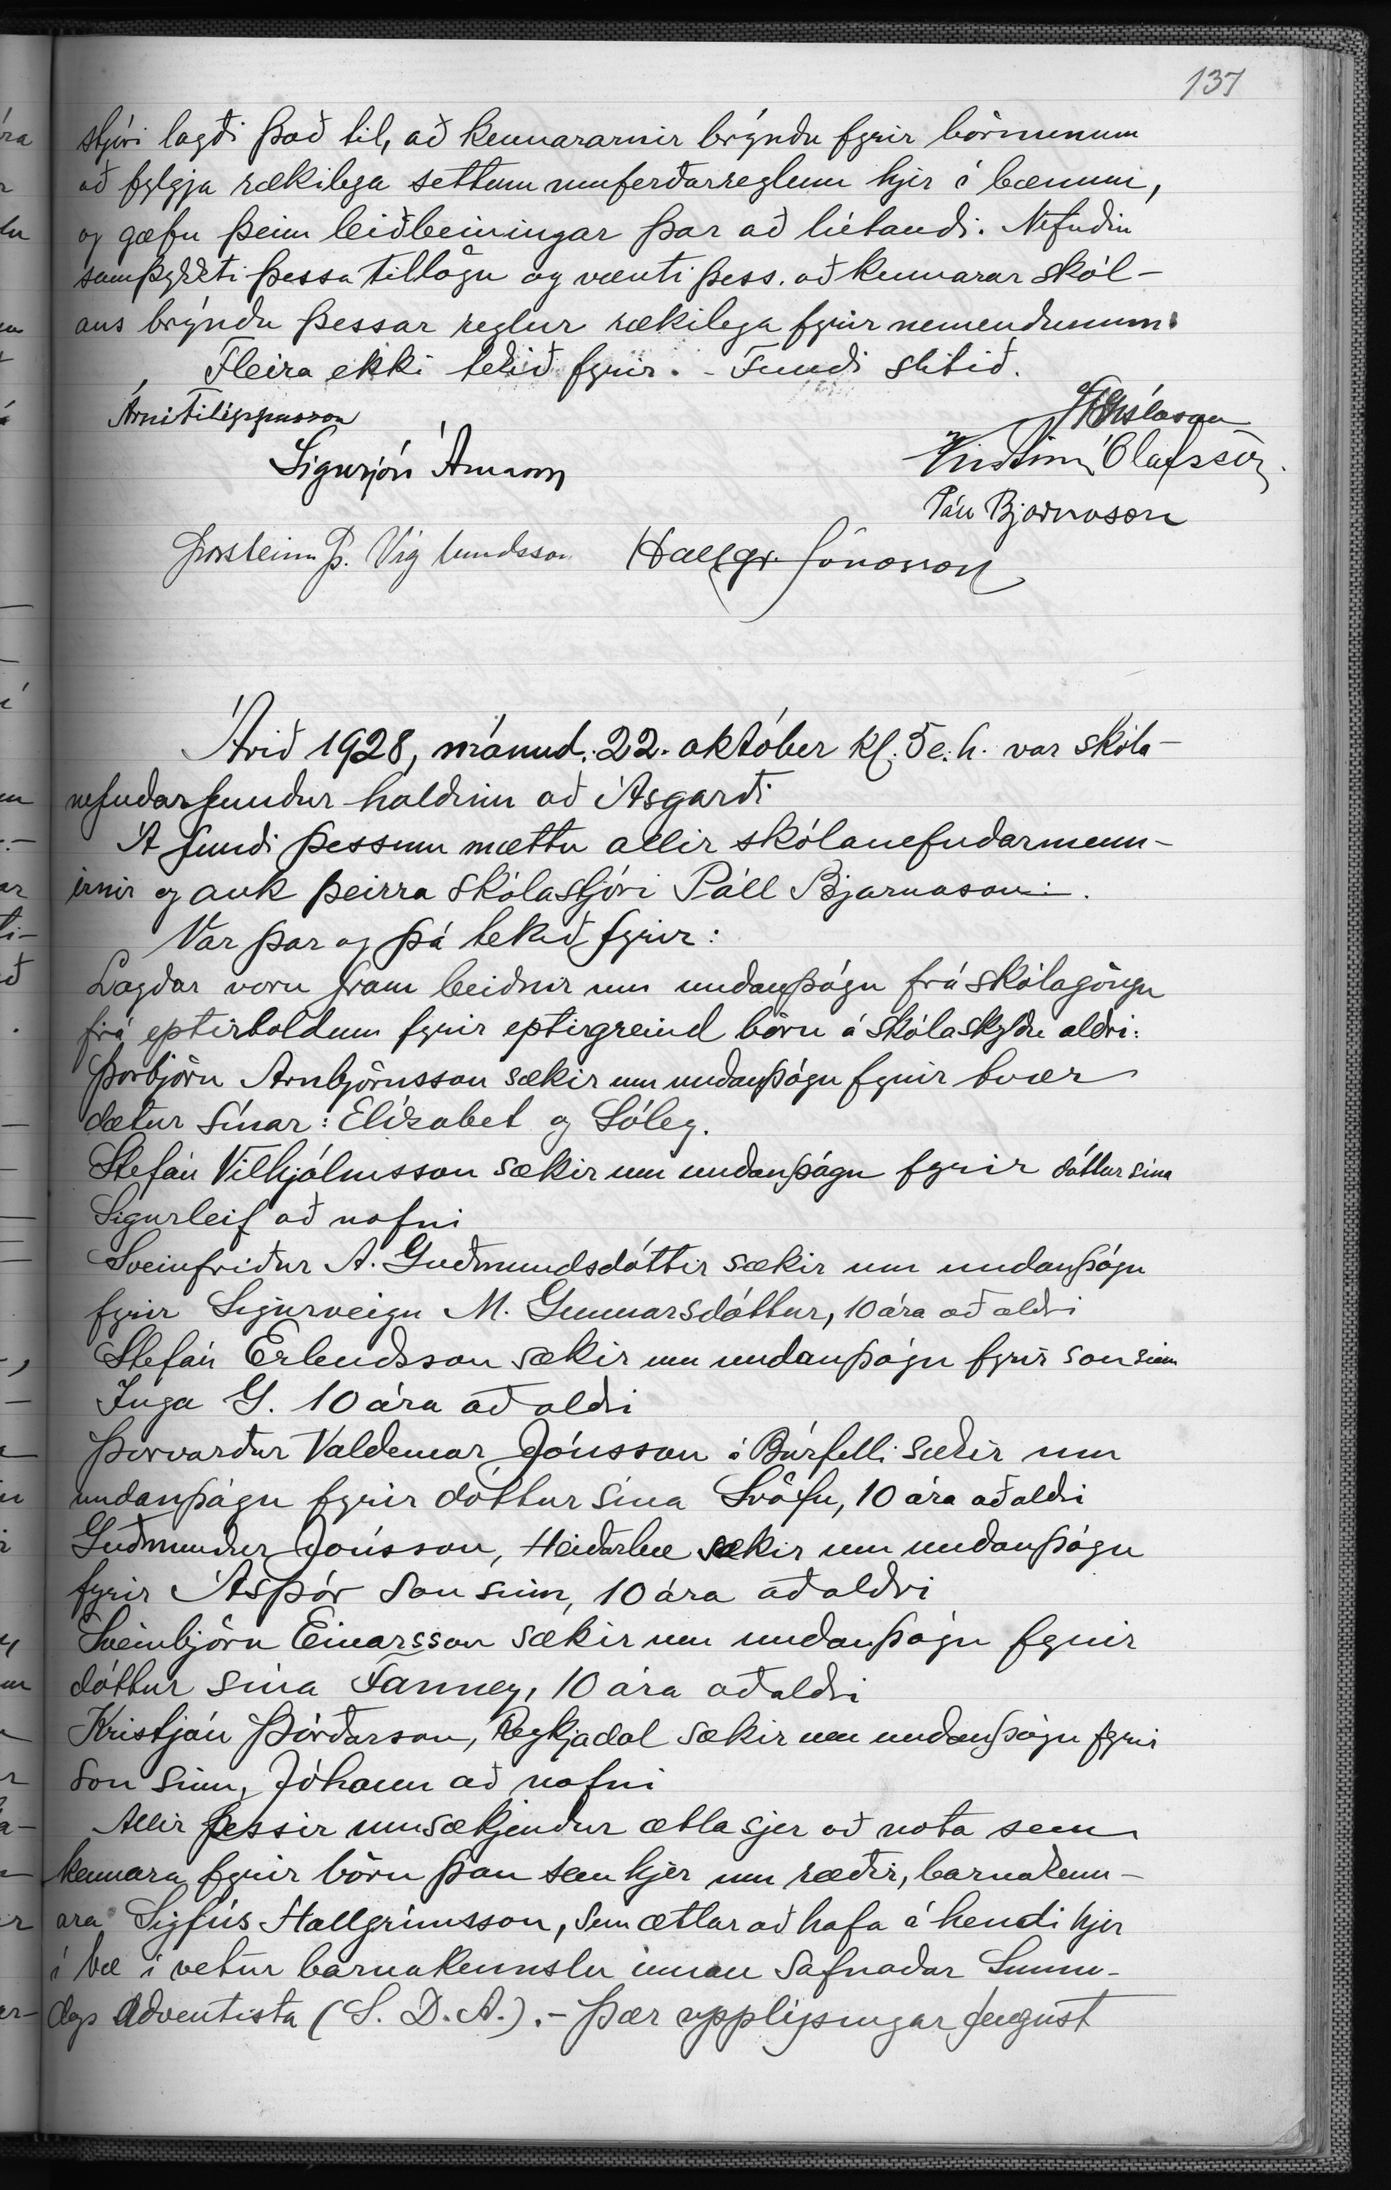 137
stjóri lagði það til, að kennararnir brýndu fyrir börnunum
að fylgja rækilega settum umferðarreglum hjer í bænum,
og gæfu þeim leiðbeiningar þar að lútandi. Nefndin
samþykkti þessa tillögu og vænti þess, að kennarar skól-
ans brýndu þessar reglur rækilega fyrir nemendunum.
Fleira ekki tekið fyrir. - Fundi slitið.
Árni Filippusson
Sigurjón Árnason
Kristinn Ólafsson.
Páll Bjarnason
Þorsteinn Þ. Víglundsson Hallgr. Jónasson
Árið 1928, mánud. 22. október kl. 5 e. h. var skóla-
nefndarfundur haldinn að Ásgarði
Á fundi þessum mættu allir skólanefndarmenn-
irnir og auk þeirra skólastjóri Páll Bjarnason.
Var þar og þá tekið fyrir:
Lagðar voru fram beiðnir um undanþágu frá skólagöngu
frá eptirtöldum fyrir eptirgreind börn á skólaskyldu aldri:
Þorbjörn Arnbjörnsson sækir um undanþágu fyrir tvær
dætur sínar: Elísabet og Sóley.
Stefán Vilhjálmsson sækir um undanþágu fyrir dóttur sína
Sigurleif að nafni
Sveinfríður A. Guðmundsdóttir sækir um undanþágu
fyrir Sigurveigu M. Gunnarsdóttur, 10 ára að aldri
Stefán Erlendsson sækir um undanþágu fyrir son sinn
Inga G. 10 ára að aldri
Þorvarður Valdemar Jónsson á Búrfelli sækir um
undanþágu fyrir dóttur sína Svöfu, 10 ára að aldri
Guðmundur Jónsson, Heiðarbæ sækir um undanþágu
fyrir Ásþór son sinn, 10 ára að aldri
Sveinbjörn Einarsson sækir um undanþágu fyrir
dóttur sína Fanney, 10 ára að aldri
Kristján Þórðarson, Reykjadal sækir um undanþágu fyrir
son sinn, Jóhann að nafni
Allir þessir umsækjendur ætla sjer að nota sem
kennara fyrir börn þau sem hjer um ræðir, barnakenn-
ara Sigfús Hallgrímsson, sem ætlar að hafa á hendi hjer
í bæ í vetur barnakennslu innan safnaðar Sunnu-
dags Adventista (S. D. A.). - Þær upplýsingar fengust